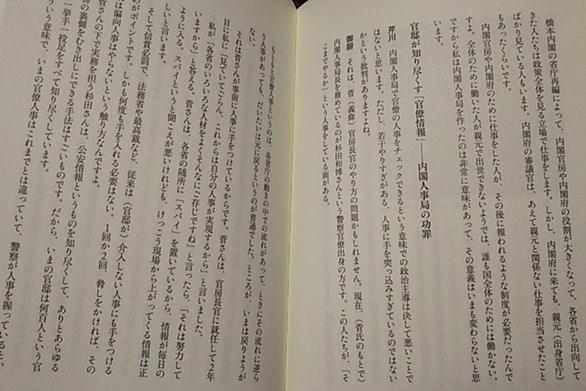 橋本内閣の省庁再編によって、内閣官房や内閣府の役割が大きくなって、各省から出向して
きた人たちは政策全体を見る立場で仕事をします。しかし、内閣府に来ても、親元（出身省庁）
ばかり見ている人もいます。内閣府の審議官は、あえて親元と関係ない仕事を担当させたこと
もあったくらいです。
内閣官房や内閣府のために仕事をした人が、その後に報われるような制度が必要だったんで
すよ。全体のために働いた人が親元で出世できないようでは、誰も国全体のためには働かない。
ですから私は内閣人事局を作ったのは非常に意味があって、その意義はいまも変わらないと思
います。
官邸が知り尽くす「官僚情報」――内閣人事局の功罪
芹川　内閣人事局で官僚の人事をチェックできるという意味での政治主導は決して悪いことで
はないと思います。ただし、若干やりすぎがある、人事に手を突っ込みすぎているのではない
かという批判がありますよね。
御厨　それは菅（義偉）官房長官のやり方の問題かもしれません。現在、（菅氏のもとで）
内閣人事局長を務めているのが杉田和博さんという警察官僚出身の方です。この人たちが、「そ
こまでやるか」という人事をしている面がある。
もともと官僚人事というのは、各省庁の動きの中での流れがあって、ときにその流れに逆ら
う人事があっても、だいたいは元に戻るというのが普通でした。ところが、いまは戻りようが
ない。
それは菅さんが事前に人事に手をつけているからです。菅さんは、官房長官に就任して2年
目に私に「見ていてごらん、これからは自分の人事が実現するから」と言いました。
私が「各省のいろいろな人材をよくそんなにご存じですね」と言ったら、「それは努力して
いますから」と答える。菅さんは、各省の随所に「スパイ」を置いているから、情報が毎日の
ように入る。スパイというと聞こえが悪いけれども、けっこう現場から上がってくる情報は正
しいと言います。
そして信賞必罰で、法務省や最高裁など、従来は（官邸が）介入しない人事にも手をつける
のがポイントです。しかも何度も手を入れる必要はない。1回か2回、脅しをかければ、その
は偏向人事はやらないという触り方なんですよ。
菅さんの下で実務を担う杉田さんは、公安情報というものを知り尽くして、ありとあらゆる
の裏側をむき出しにできる手法はすごいものです。だから、いまの官邸は何百人という官
一挙手一投足をすべて知り尽くしています。
ういう意味で、いまの官僚人事はこれまでとは違っていて、警察が人事を握っていると、